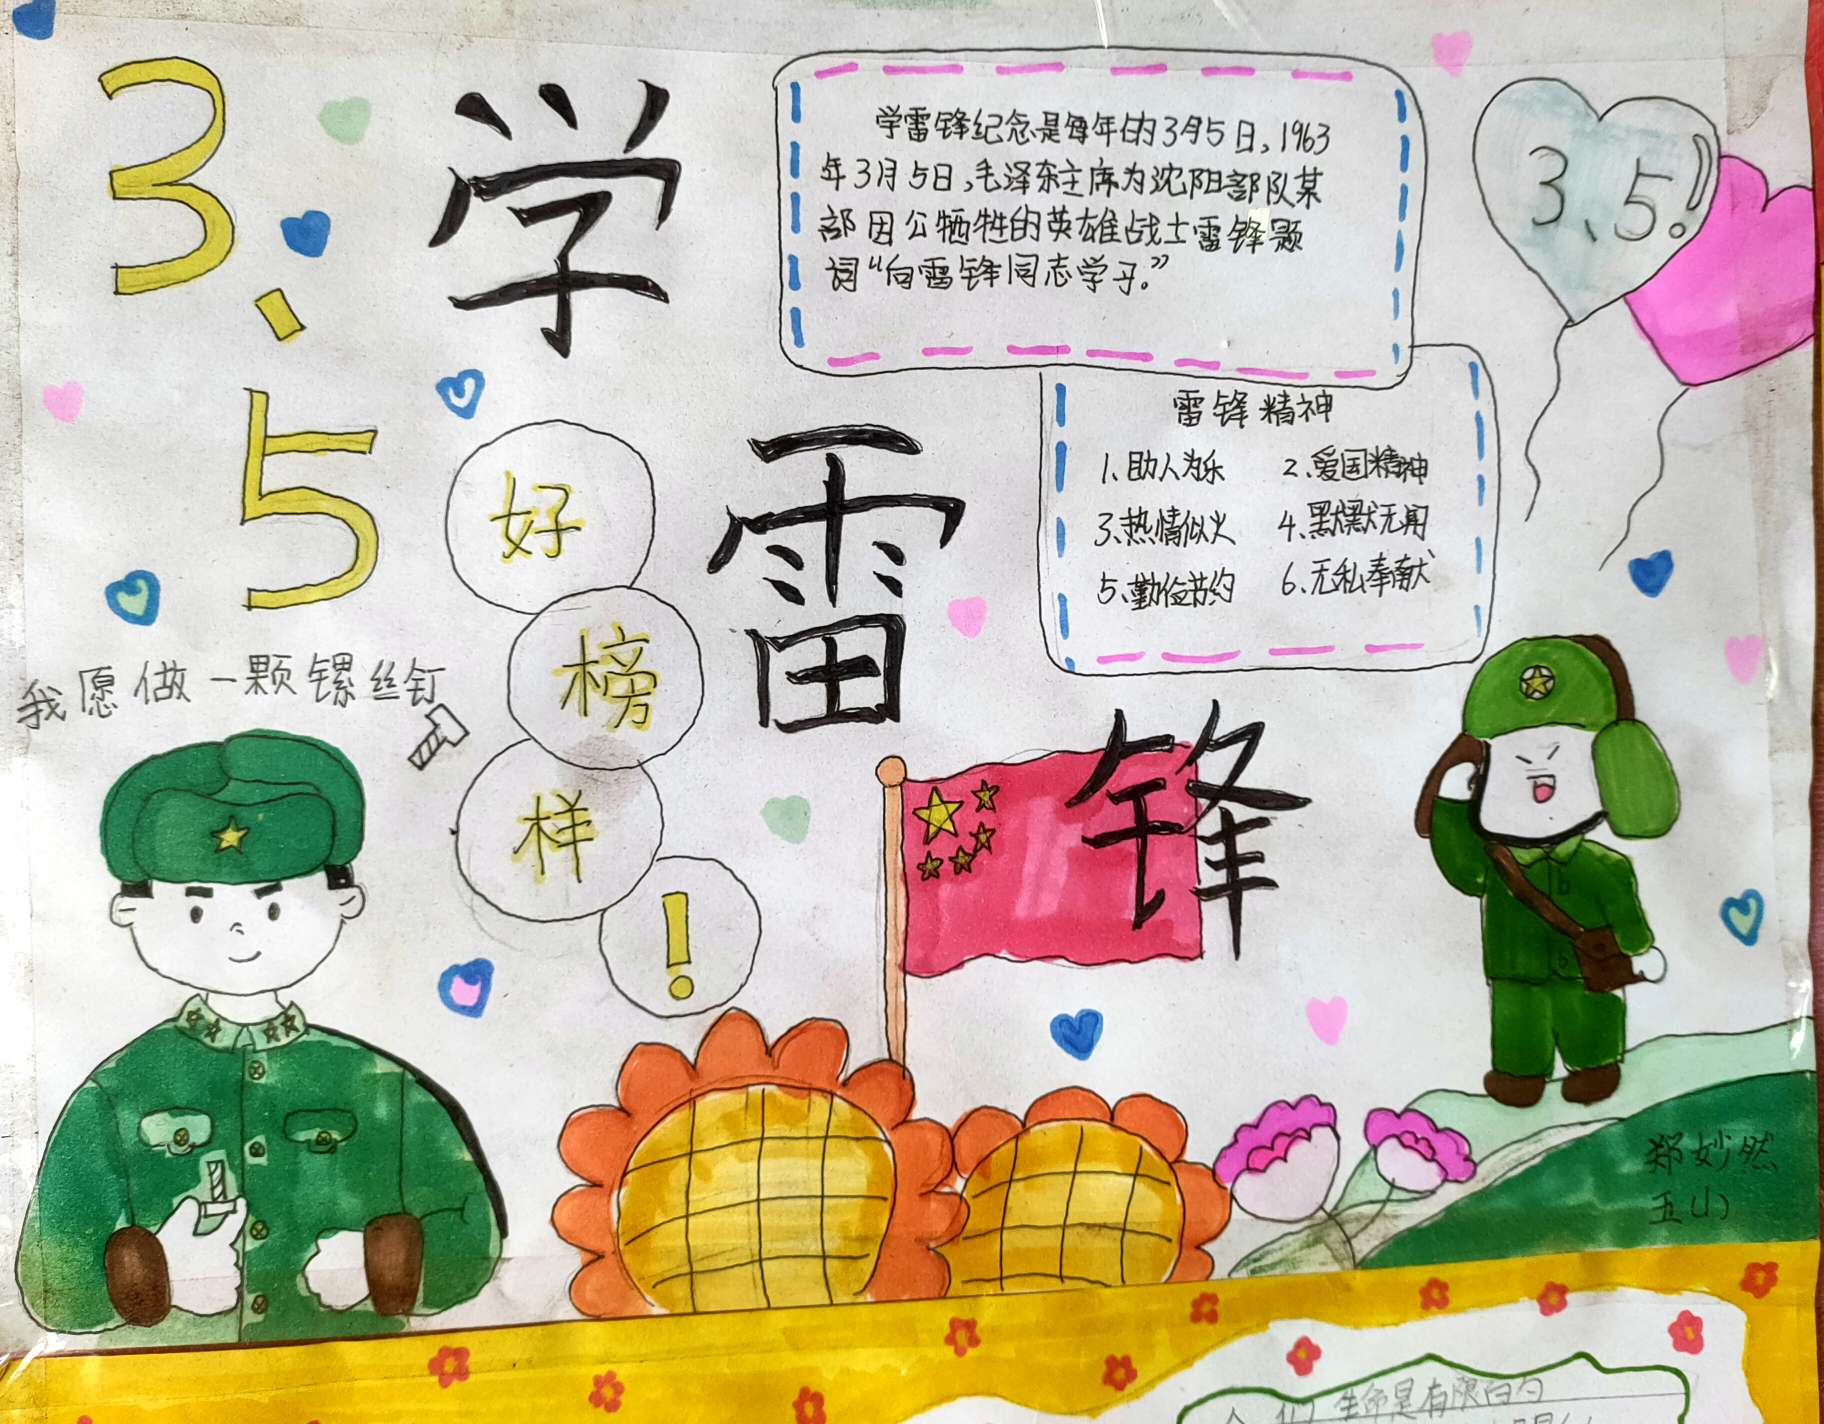 3、5
学雷锋
好榜样!
学雷锋纪念是每年的3月5日,1963
年3月5日,毛泽东主席为沈阳部队某
部因公牺牲的英雄战士雷锋题
词“向雷锋同志学习。”
3、5!
雷锋精神
1、助人为乐 2、爱国精神
3、热情似火 4、默默无闻
5、勤俭节约 6、无私奉献
我愿做一颗镙丝钉
郑妙然
五(1)
生命是有限的